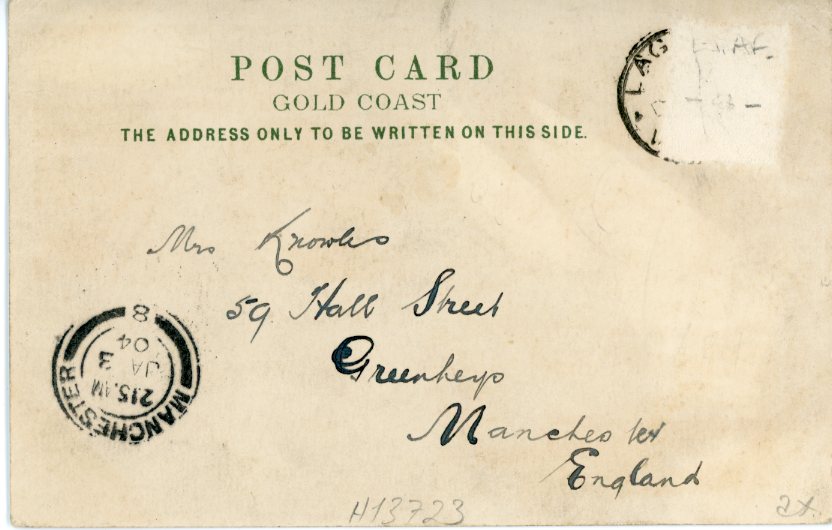 POST CARD
GOLD COAST
THE ADDRESS ONLY TO BE WRITTEN ON THIS SIDE.
LAG
Mrs Knowles
59 Hall Street
Greenheys
Manchester
England
MANCHESTER
2.15.AM
JA 3
04
8
H13723